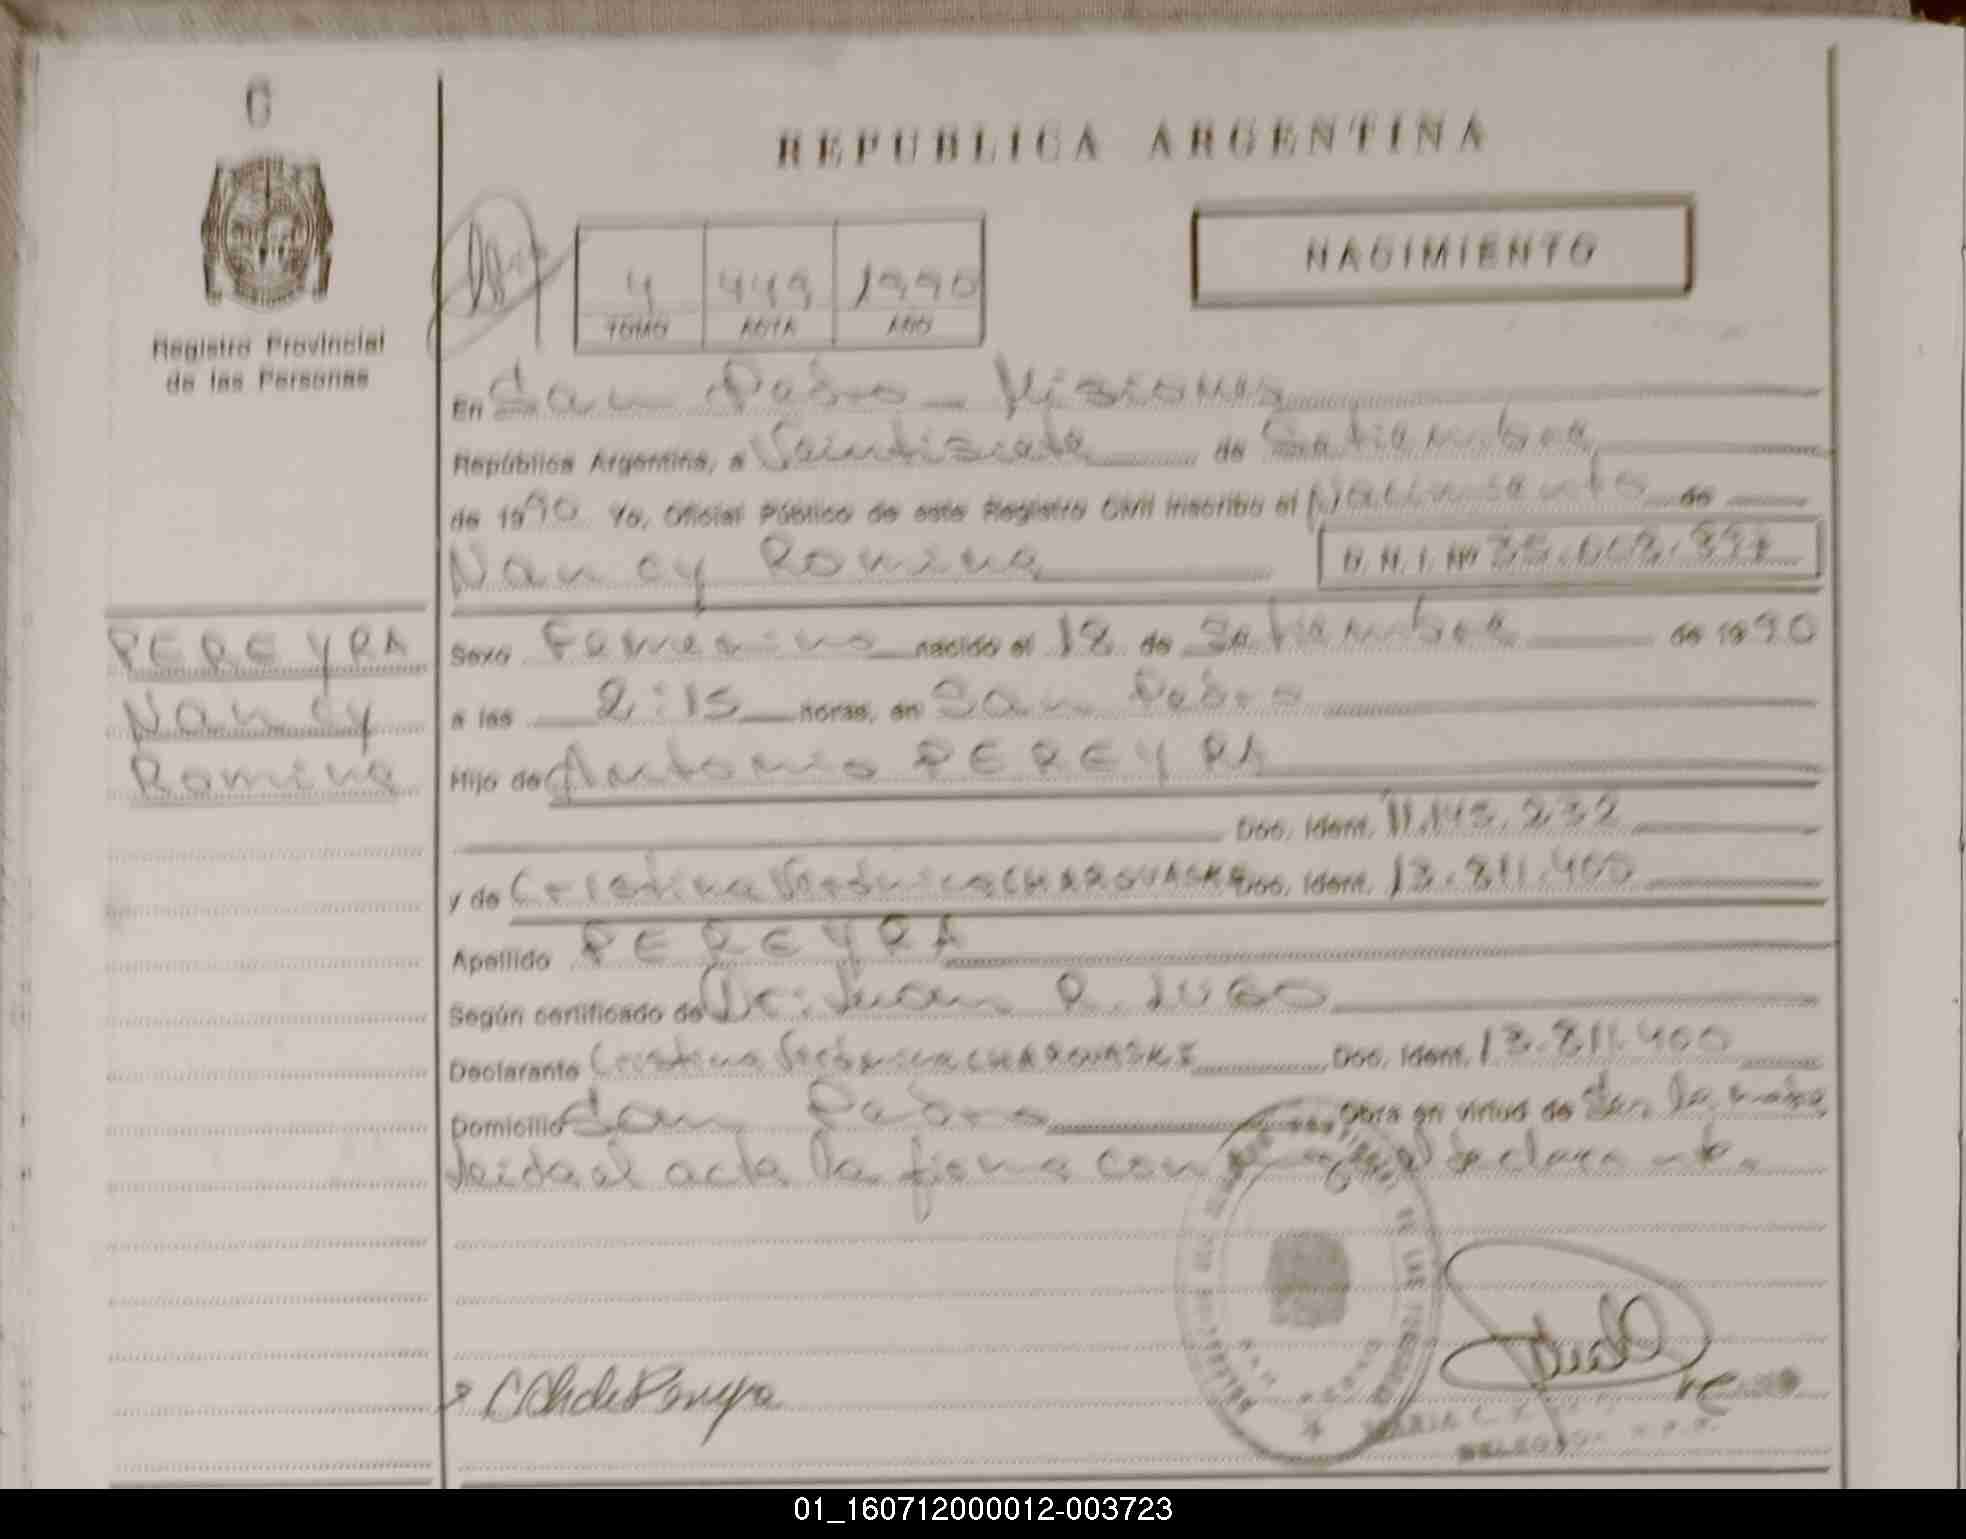 6
REPUBLICA ARGENTINA
NACIMIENTO
4 449 1990
TOMO ACTA AÑO
Registro Provincial
de las Personas
En San Pedro - Misiones
República Argentina, a Veintisiete de Setiembre
de 1990 Yo, Oficial Público de este Registro Civil inscribo el Nacimiento de
Nancy Romina D.N.I. Nº
PEREYRA
Nancy
Romina
Sexo Femenino nacido el 18 de Setiembre de 1990
a las 2:15 horas, en San Pedro
Hijo de Antonio PEREYRA
Doc. Ident. 11.145.232
y de Cristina Verónica Doc. Ident. 13.811.400
Apellido PEREYRA
Según certificado de Dr. Juan R. LUGO
Declarante Cristina Verónica Doc. Ident. 13.811.400
Domicilio San Pedro Obra en virtud de Ser la madre
leida el acta la firma con el declarante.
01_160712000012-003723